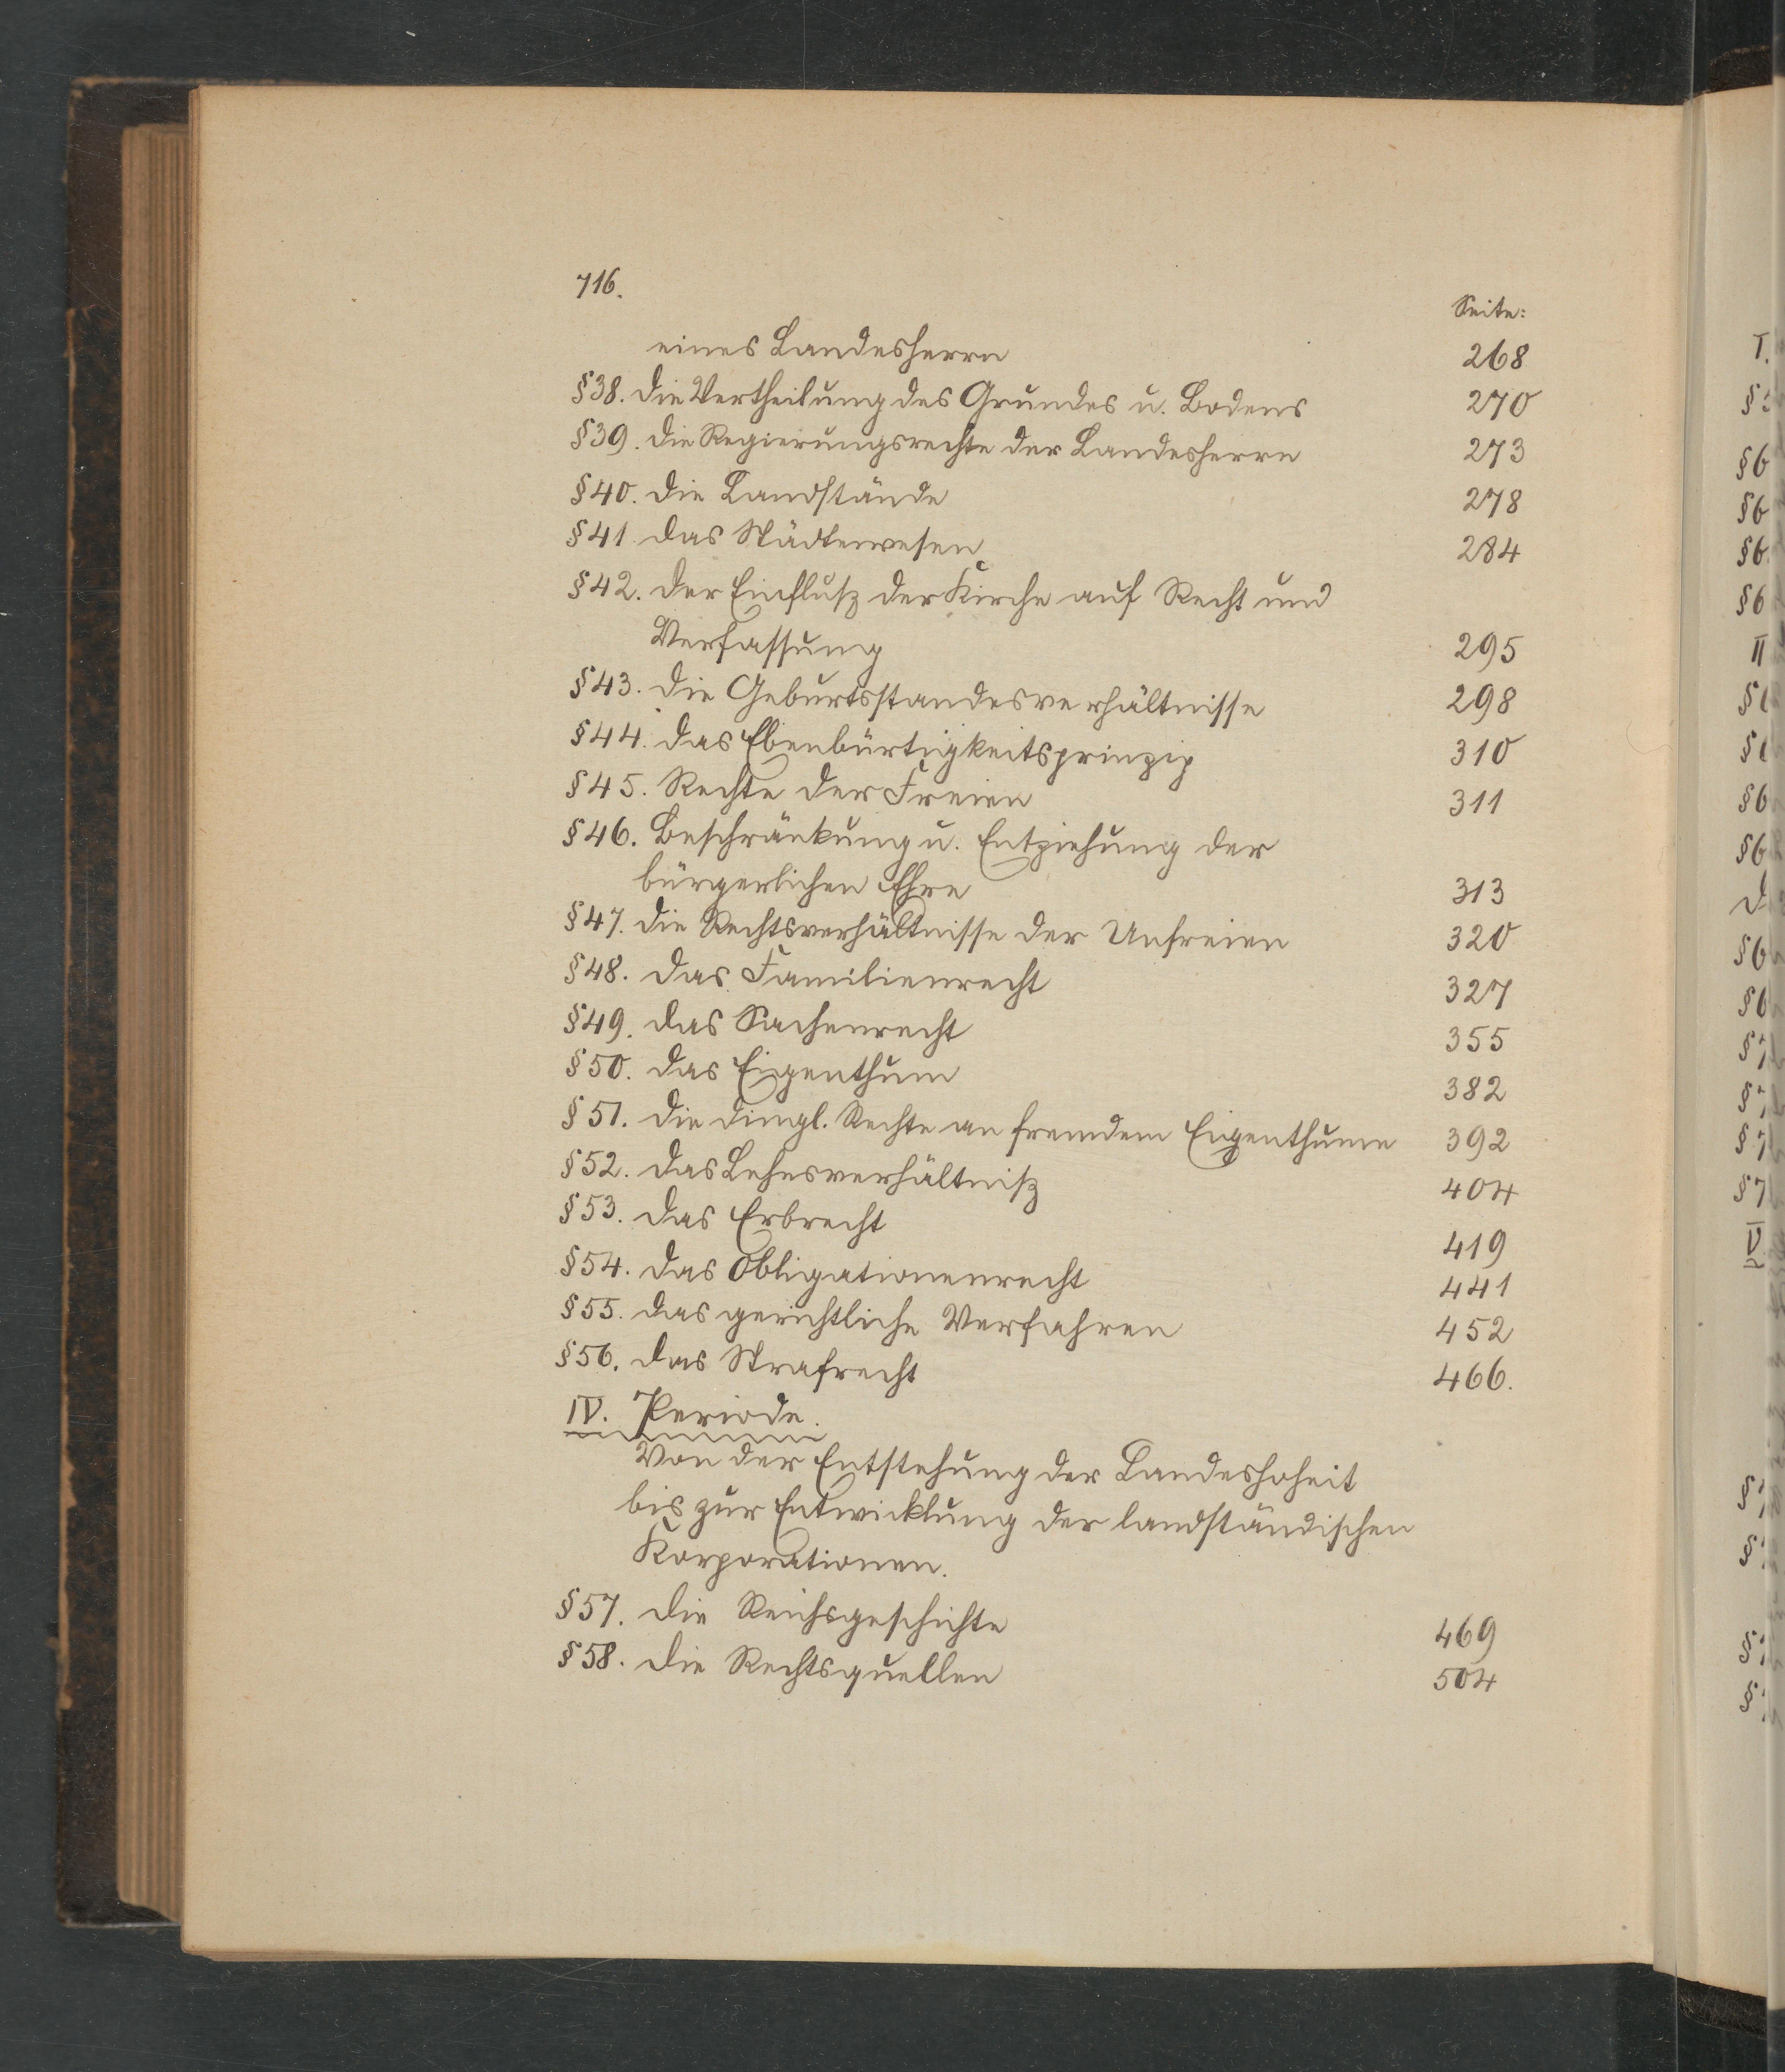 716.
Seite:
eines Landesherrn 268
§38. Die Vertheilung des Grundes u. Bodens 270
§39. Die Regierungsrechte der Landesherrn 273
§40. Die Landstände 278
§41. Das Städtewesen 284
§42. Der Einfluß der Kirche auf Recht und
Verfassung 295
§43. Die Geburtsstandesverhältnisse 298
§44. Das Ebenbürtigkeitsprinzip 310
§45. Rechte der Freien 311
§46. Beschränkung u. Entziehung der
bürgerlichen Ehre 313
§47. Die Rechtsverhältnisse der Unfreien 320
§48. Das Familienrecht 327
§49. Das Sachenrecht 355
§50. Das Eigenthum 382
§51. Die dingl. Rechte an fremdem Eigenthume 392
§52. Das Lehesverhältniß 404
§53. Das Erbrecht 419
§54. Das Obligationenrecht 441
§55. Das gerichtliche Verfahren 452
§56. Das Strafrecht 466.
IV. Periode.
Von der Entstehung der Landeshoheit
bis zur Entwicklung der landständischen
Korporationen.
§57. Die Reichsgeschichte 469
§58. Die Rechtsquellen 504